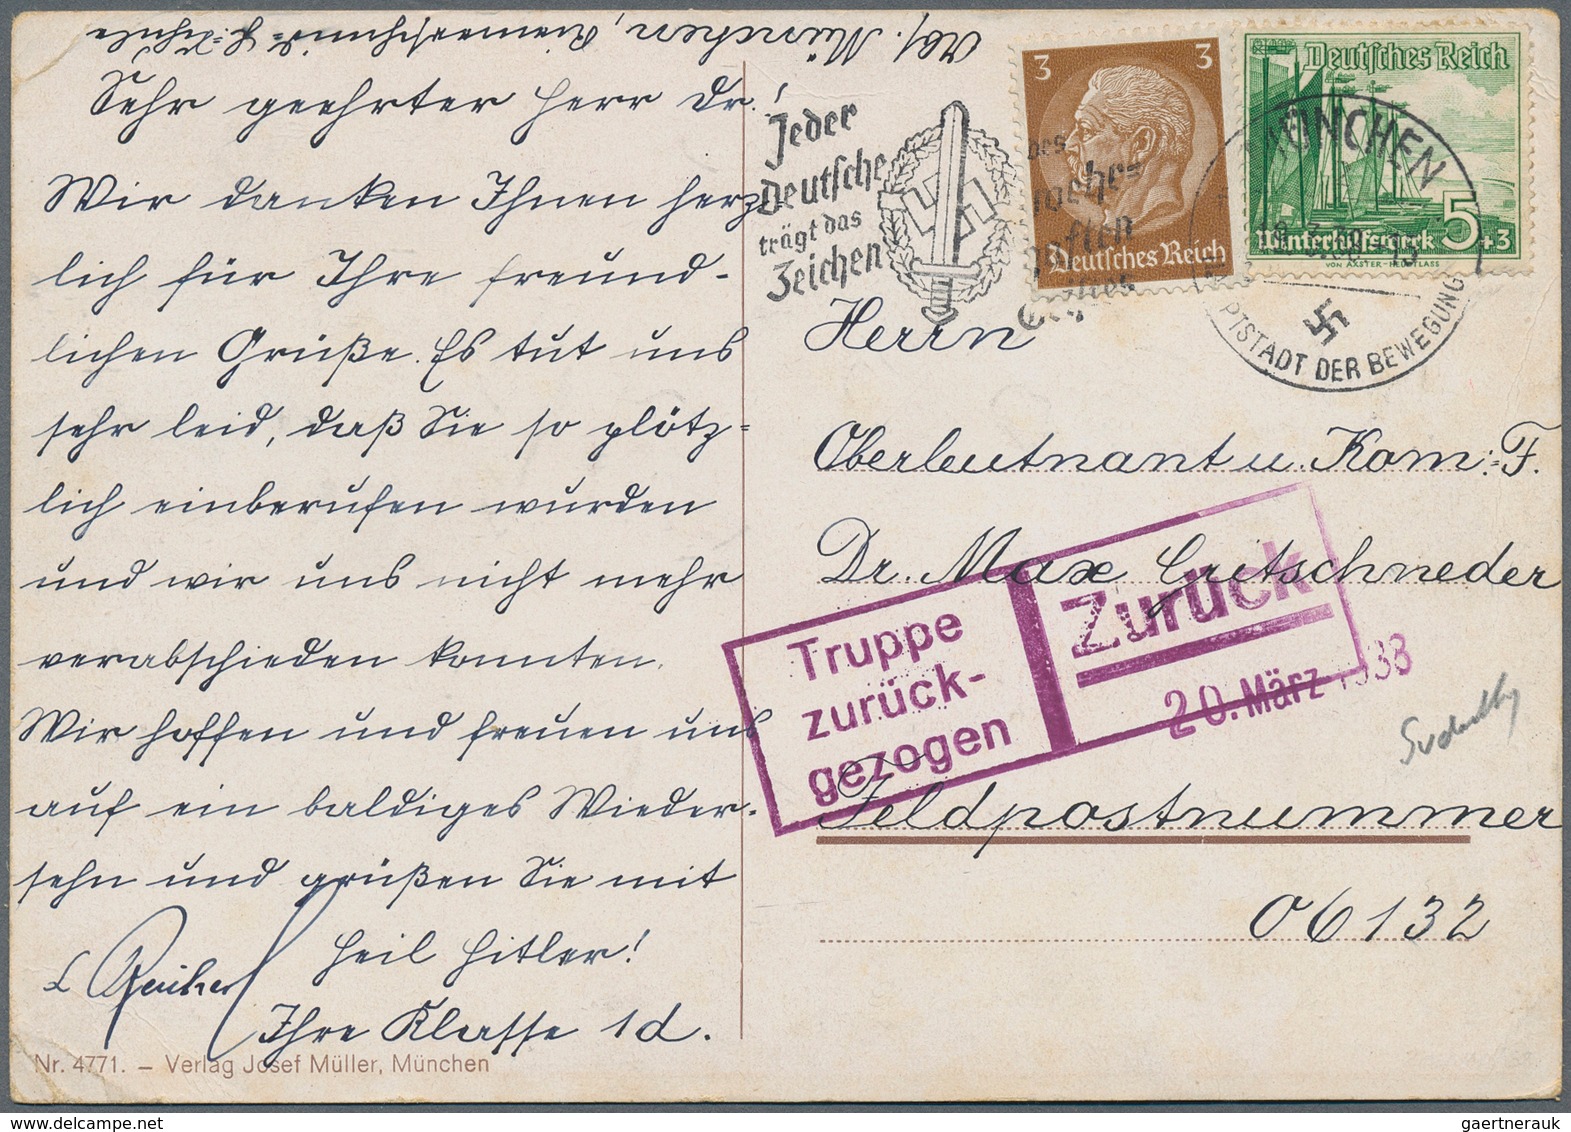 Abs. München, Riemerschmid-H.-Schule
Sehr geehrter Herr Dr.!
Wir danken Ihnen herz
lich für Ihre freund-
lichen Grüße. Es tut uns
sehr leid, daß Sie so plötz=
lich einberufen wurden
und wir uns nicht mehr
verabschieden konnten.
Wir hoffen und freuen uns
auf ein baldiges Wieder-
sehn und grüßen Sie mit
Heil Hitler!
Ihre Klasse 1d.
Nr. 4771. – Verlag Josef Müller, München
Jeder
Deutsche
trägt das
Zeichen
3 3
Deutsches Reich
Deutsches Reich
5+3
Winterhilfswerk
VON AXSTER-HEUDTLASS
MÜNCHEN
PTSTADT DER BEWEGUNG
Herrn
Oberleutnant u. Kom:=F.
Dr. Max Gritschneder
Truppe
zurück-
gezogen
Zurück
20. März 1938
Feldpostnummer
06132
gaertnerauk